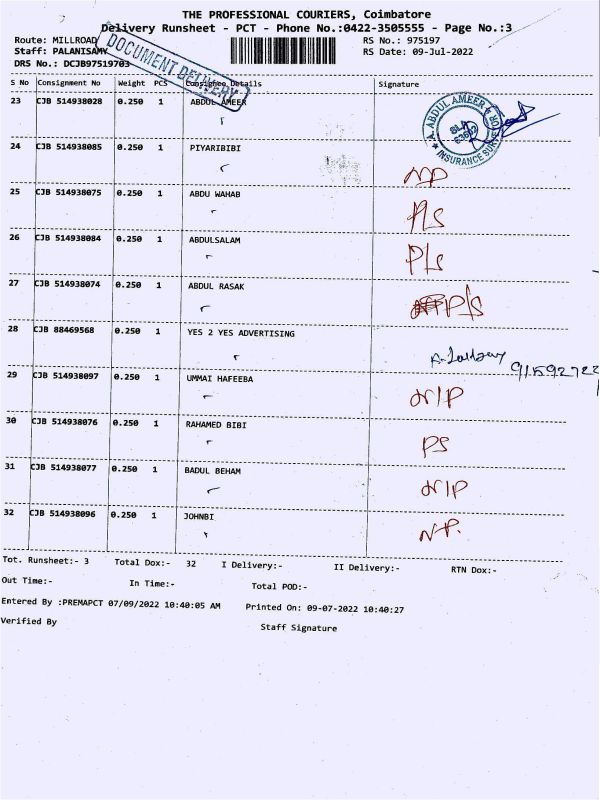 THE PROFESSIONAL COURIERS, Coimbatore
Delivery Runsheet - PCT - Phone No.:0422-3505555 - Page No.:3
Route: MILLROAD RS No.: 975197
Staff: PALANISAMY RS Date: 09-Jul-2022
DRS No.: DCJB97519703
DOCUMENT DELIVERY
S No Consignment No Weight PCS Consignee Details Signature
23 CJB 514938028 0.250 1 ABDUL AMEER
A. ABDUL AMEER
SLA
INSURANCE SURVEYOR
24 CJB 514938085 0.250 1 PIYARIBIBI NP
25 CJB 514938075 0.250 1 ABDU WAHAB P/s
26 CJB 514938084 0.250 1 ABDULSALAM P/s
27 CJB 514938074 0.250 1 ABDUL RASAK P/s
28 CJB 88469568 1 YES 2 YES ADVERTISING
29 CJB 514938097 0.250 1 UMMAI HAFEEBA N/P
30 CJB 514938076 0.250 1 RAHAMED BIBI PS
31 CJB 514938077 0.250 1 BADUL BEHAM N/P
32 CJB 514938096 0.250 1 JOHNBI N.P.
Tot. Runsheet:- 3 Total Dox:- 32 I Delivery:- II Delivery:- RTN Dox:-
Out Time:- In Time:- Total POD:-
Entered By :PREMAPCT 07/09/2022 10:40:05 AM Printed On: 09-07-2022 10:40:27
Verified By Staff Signature